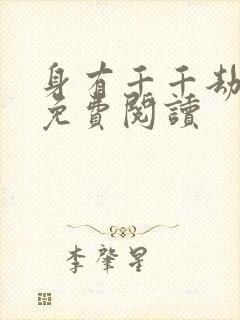 身有千千劫
免費閱讀
李肇星